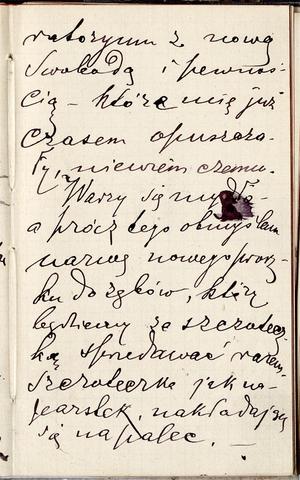 ratoryum z nową
swobodą i pewnoś-
cią – które mię już
czasem opuszcza-
ły, niewiem czemu.
Warzy się mydło
a prócz tego obmyślam
nazwę nowego prosz-
ku do zębów, który
będziemy ze szczotecz-
ką sprzedawać razem.
Szczoteczka jak na-
parstek, nakładaj
się na palec. —